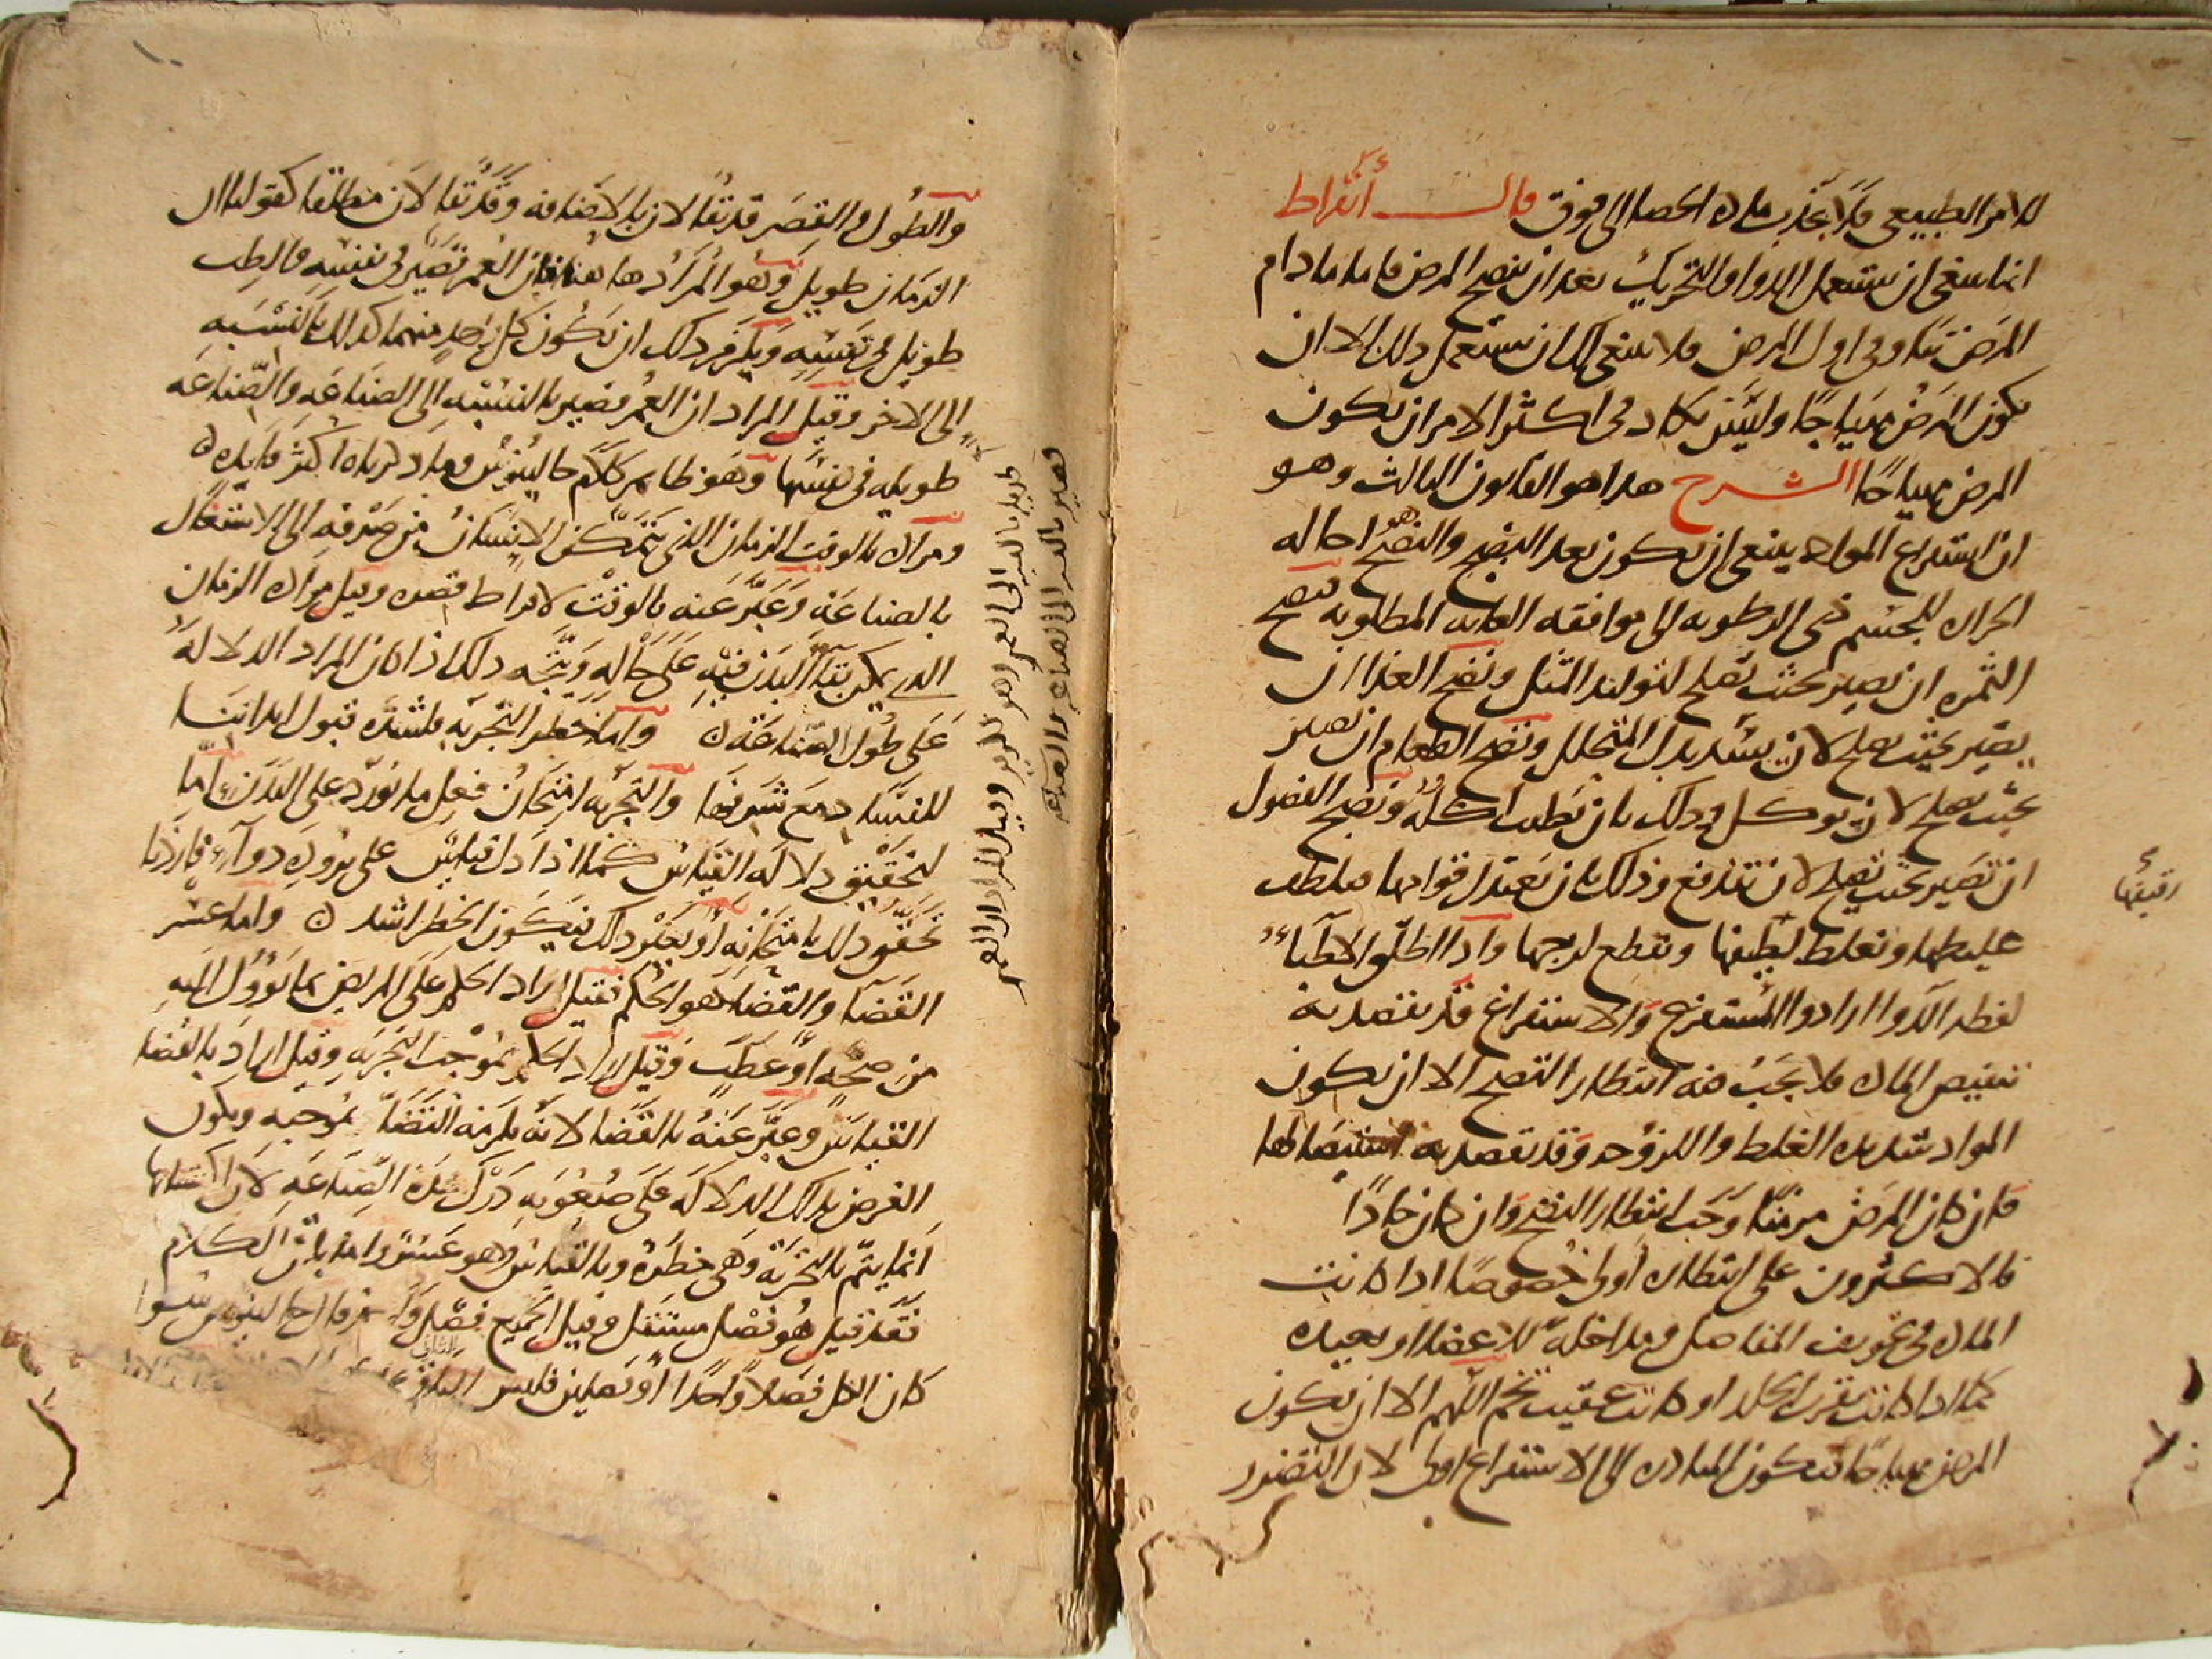 للامر الطبيعي فلا يجذب مادة الحصا الى فوق قال أبقراط
انما ينبغي ان يستعمل الدوا والتحريك بعد ان ينضج المرض فاما ما دام
المرض نيا وفي اول المرض فلا ينبغي لك ان تستعمل ذلك الا ان
يكون المرض مهياجا وليس يكاد في اكثر الامر ان يكون
المرض مهياجا الشرح هذا هو القانون الثالث وهو
ان استفراغ المواد ينبغي ان يكون بعد النضج والنضج هو احاله
الحراره للجسم ذي الرطوبه الى موافقه الغايه المطلوبه فنضج
الثمره ان تصير بحيث تصلح لتوليد المثل ونضج الغذا ان
يصير بحيث يصلح لان يسد بدل المتحلل ونضج الطعام ان يصير
بحيث يصلح لان يوكل وذلك بان يطيب اكله ونضج الفضول
ان تصير بحيث تصلح لان تندفع وذلك بان يعتدل قوامها فيلطف
غليظها ويغلظ لطيفها ويقطع لزجها واذا اطلق الاطباء
رقيقها
لفظه الدوا ارادوا المستفرغ والاستفراغ قد يقصد به
تنقيص الماده فلا يجب فيه انتظار النضج الا ان يكون
المواد شديده الغلظ واللزوجه وقد يقصد به استيصالها
فان كان المرض مزمنا وجب انتظار النضج وان كان حادا
فالاكثرون على ان انتظاره اولى خصوصا اذا كانت
الماده في تجويف المفاصل ومداخله للاعضا او بعيده
كما اذا كانت بقرب الجلد او كانت عقيب تخم اللهم الا ان يكون
المرض مهياجا فيكون المبادره الى الاستفراغ اولى لان التضرر
والطول والقصر قد يقالان بالاضافه وقد يقالان مطلقا كقولنا ان
الزمان طويل وهو المراد هاهنا فان العمر قصير في نفسه والطب
طويل في نفسه ويلزم ذلك ان يكون كل واحد منهما كذلك بالنسبه
الى الاخر وقيل المراد ان العمر قصير بالنسبه الى الصناعه والصناعه
طويله في نفسها وهو ظاهر كلام جالينوس وما ذكرناه اكثر فايده
ومراده بالوقت الزمان الذي يتمكن الانسان من صرفه الى الاشتغال
بالصناعه وعبر عنه بالوقت لافراط قصره وقيل مراده الزمان
الذي يمكن بقاء البدن فيه على حاله ويتجه ذلك اذا كان المراد الدلاله
على طول الصناعه واما خطر التجربه فلشده قبول ابداننا
للفساد مع شرفها والتجربه امتحان فعل ما يورد على البدن اما
لتحقيق دلاله القياس كما اذا دل قياس على بروده دواء فاردنا
تحقق ذلك بامتحانه او بغير ذلك فيكون الخطر اشد واما عسر
القضا والقضا هو الحكم فقيل اراد الحكم على المريض بما يؤول اليه
من صحه او عطب وقيل اراد الحكم بموجب التجربه وقيل اراد بالقضا
القياس وعبر عنه بالقضا لانه يلزمه القضا بموجبه ويكون
الغرض بذلك الدلاله على صعوبه درك هذه الصناعه لان اكتسابها
انما يتم بالتجربه وهي خطره وبالقياس وهو عسر واما باقي الكلام
فقد قيل هو فصل مستقل وقيل الجميع فصل واحد ثم قال جالينوس سوا
كان الكل فصلا واحدا او فصلين فليس
طويل بالقياس الى العمر اذ هو قصير وقيل المراد ان العمر
قصير بالقياس الى الصناعه والصناعه